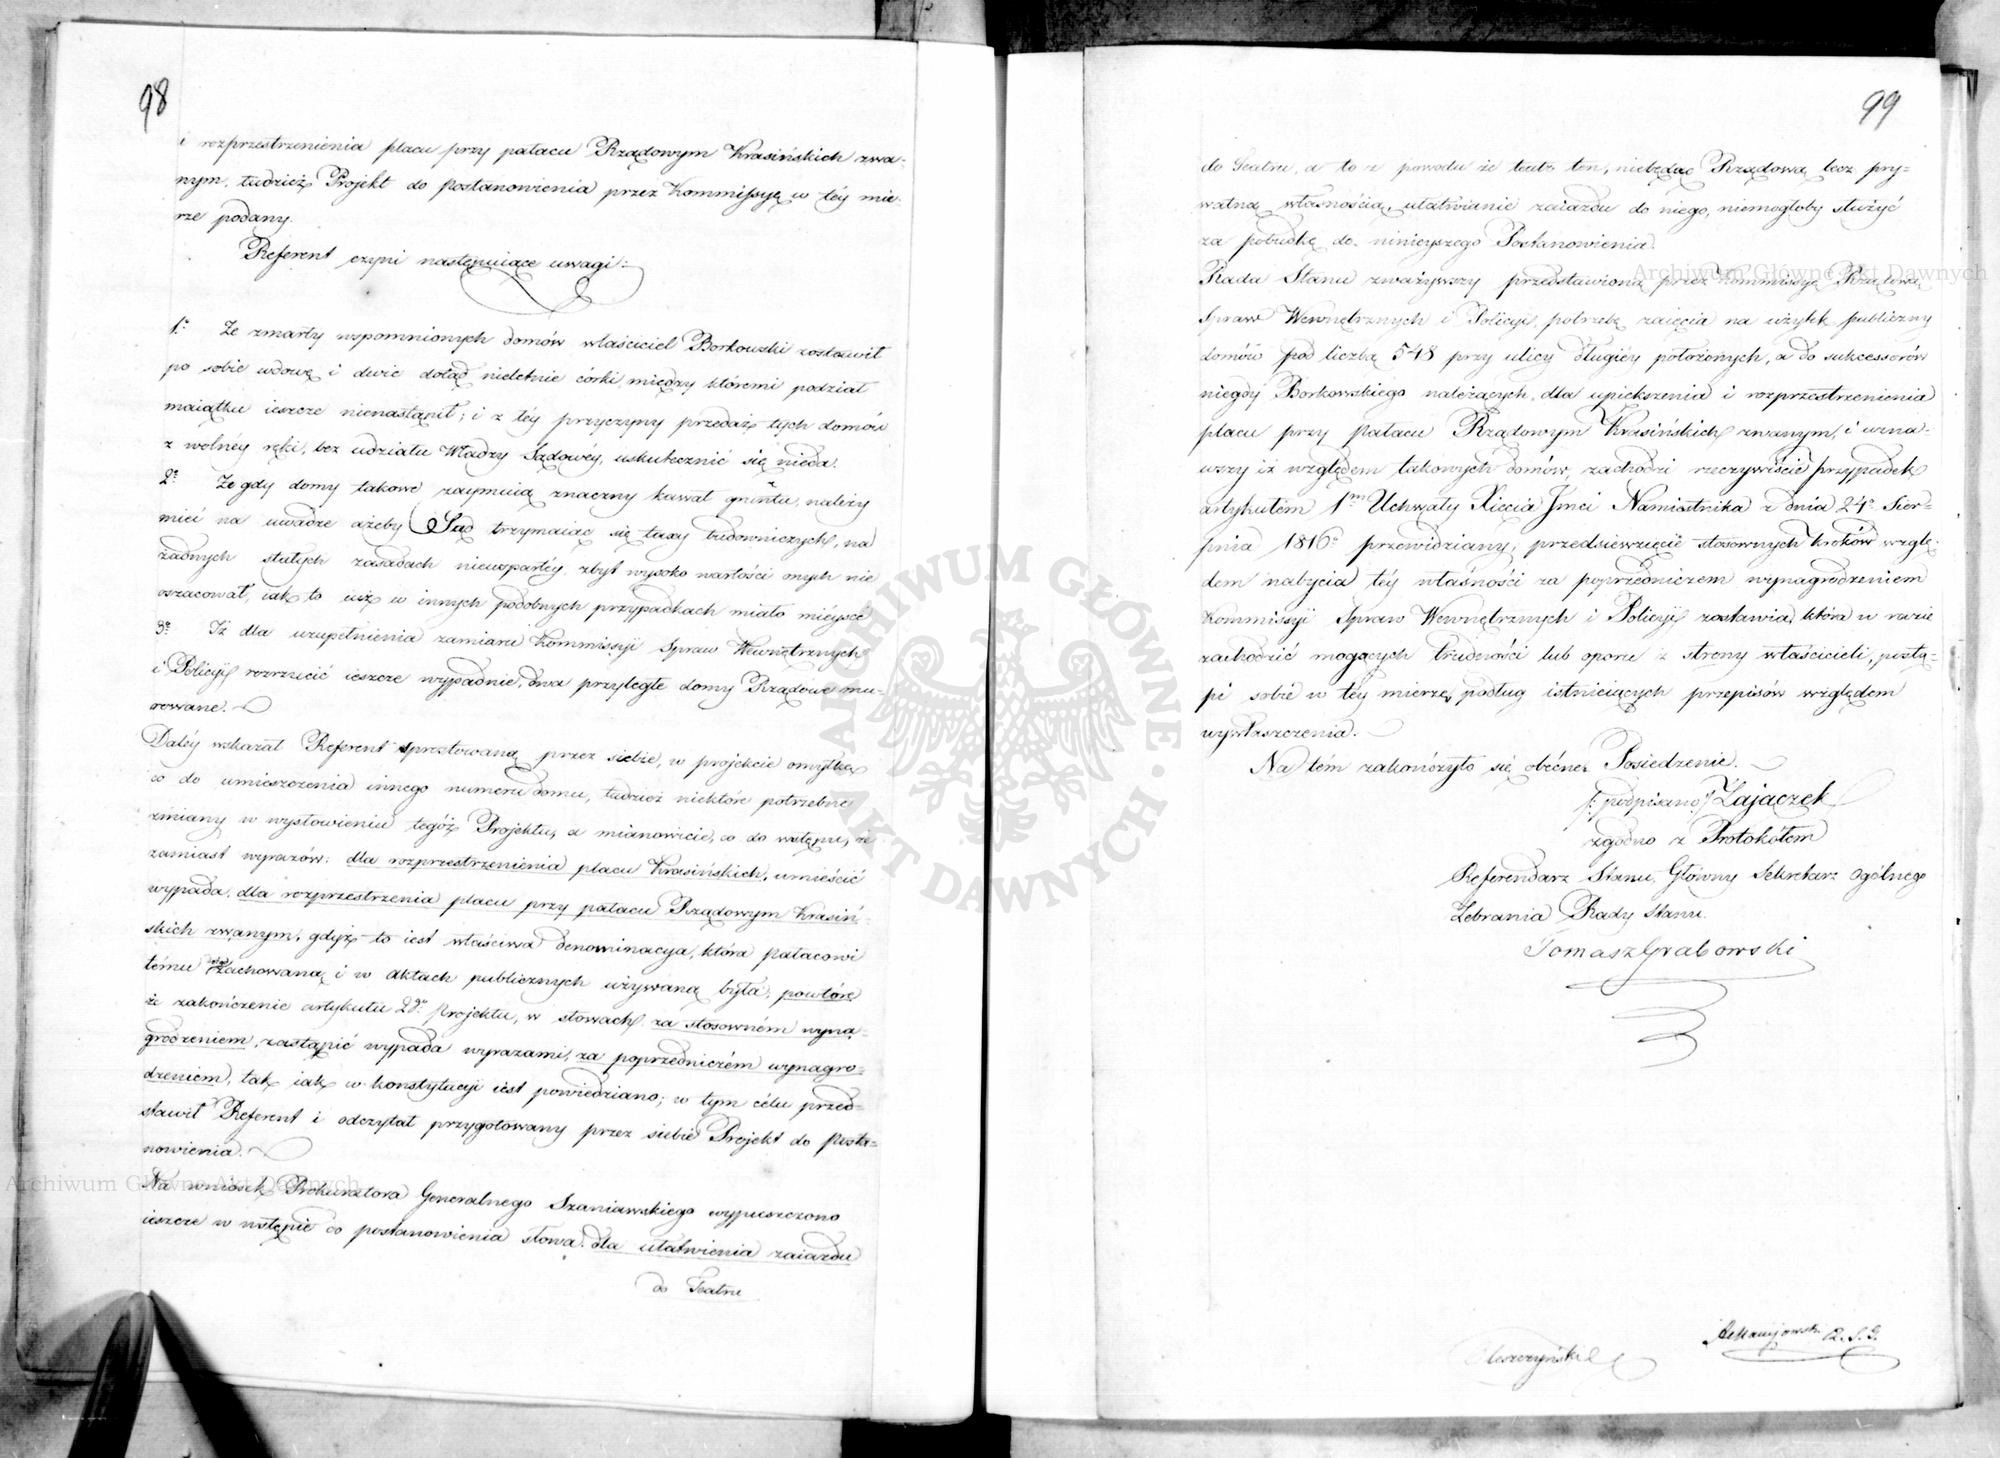 98
i rozprzestrzenienia placu przy pałacu Rządowym Krasińskich zwa-
nym, tudzież Projekt do postanowienia przez Kommissyę w téy mie-
rze podany.
Referent czyni następuiące uwagi:
1e. Że zmarły wspomnionych domów właściciel Borkowski zostawił
po sobie wdowę i dwie dotąd nieletnie córki, między któremi podział
maiątku ieszcze nienastąpił; i z téy przyczyny przedaż tych domów
z wolnéy ręki, bez udziału Władzy Sądowéy, uskutecznić się nieda.
2e. Że gdy domy takowe zaymuią znaczny kawał gruntu, należy
mieć na uwadze ażeby Sąd trzymaiąc się taxy budowniczych, na
żadnych stałych zasadach nieuspartéy, zbyt wysoko wartości onych nie
oszacował, iak to iuż w innych podobnych przypadkach miało mieysce.
3e. Iż dla uzupełnienia zamiaru Kommissyi Spraw Wewnętrznych
i Policyi rozrzucić ieszcze wypadnie, dwa przyległe domy Rządowe mu-
rowane.
Daléy wskazał Referent sprostowaną przez siebie, w projekcie omyłkę
co do umieszczenia innego numeru domu, tudzież niektóre potrzebne
zmiany w wysłowieniu tegóż Projektu, a mianowicie, co do wstępu, że
zamiast wyrazów: dla rozprzestrzenienia placu Krasińskich, umieścić
wypada, dla rozprzestrzenia placu przy pałacu Rządowym Krasiń-
skich zwanym, gdyż to iest właściwa denominacya, która pałacowi
temu zachowaną i w aktach publicznych używaną była, powtóre
że zakończenie artykułu 2go Projektu, w słowach, za stosowném wyna-
grodzeniem, zastąpić wypada wyrazami, za poprzedniczém wynagro-
dzeniem, tak iak w konstytucyi iest powiedziano; w tym celu przed-
stawił Referent i odczytał przygotowany przez siebie Projekt do posta-
nowienia.
Na wniosek Prokuratora Generalnego Szaniawskiego wypuszczono
ieszcze w wstępie do postanowienia słowa, dla ułatwienia zaiazdu
do Teatru
99
do Teatru, a to z powodu że teatr ten, niebędąc Rządową, lecz pry-
watną własnością, ułatwianie zaiazdu do niego, niemogłoby służyć
za pobudkę do ninieyszego Postanowienia.
Rada Stanu zważywszy przedstawioną przez Kommissyę Rządową
Spraw Wewnętrznych i Policyi, potrzebę zaięcia na użytek publiczny
domów pod liczbą 548 przy ulicy długiéy położonych, a do sukcessorów
niegdy Borkowskiego należących, dla upiększenia i rozprzestrzenienia
placu przy pałacu Rządowym Krasińskich zwanym, i uzna-
wszy iż względem takowych domów, zachodzi rzeczywiście przypadek
artykułem 1m Uchwały Xięcia Jmci Namiestnika z dnia 24o Sier-
pnia 1816o przewidziany; przedsięwzięcie stosownych kroków wzglę-
dem nabycia téy własności za poprzedniczem wynagrodzeniem
Kommissyi Spraw Wewnętrznych i Policyi zostawia, która w razie
zachodzić mogących trudności lub oporu z strony właścicieli, postą-
pi sobie w téy mierze podług istnieiących przepisów względem
wywłaszczenia.
Na tém zakończyło się obecne Posiedzenie.
/: podpisano :/ Zajączek
zgodno z Protokołem
Referendarz Stanu, Główny Sekretarz Ogólnego
Zebrania Rady Stanu.
Tomasz Grabowski
R. S. G.
Archiwum Główne Akt Dawnych
Archiwum Główne Akt Dawnych
ARCHIWUM GŁÓWNE · AKT DAWNYCH ·